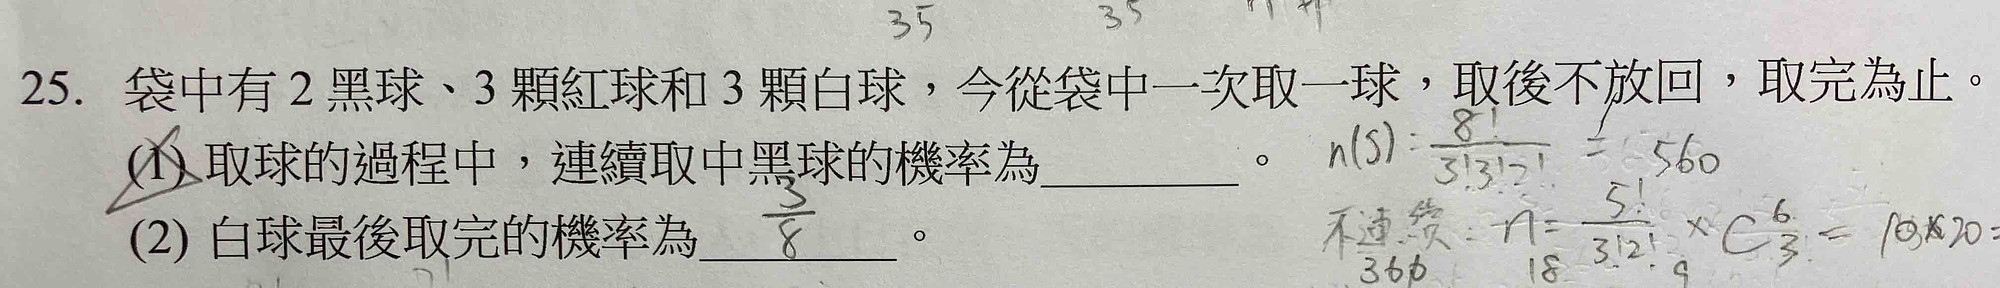 35 35
25. 袋中有 2 黑球、3 顆紅球和 3 顆白球，今從袋中一次取一球，取後不放回，取完為止。
(1) 取球的過程中，連續取中黑球的機率為________。 n(S) = 8!/3!3!2! = 560
(2) 白球最後取完的機率為 3/8 。 不連續: n = 5!/3!2! × C 6/3 = 10×20 =
366 18 9